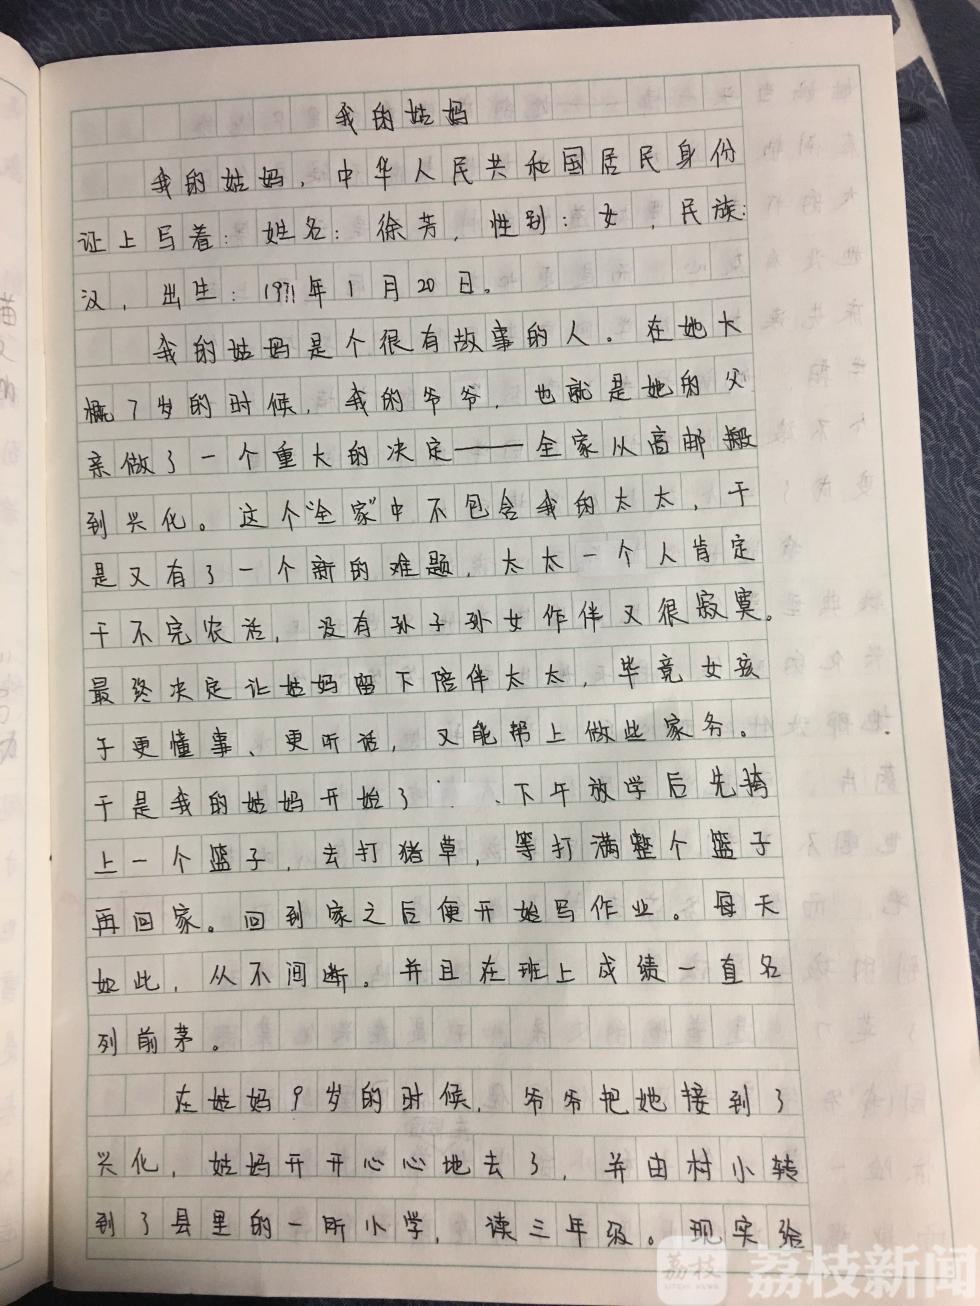 我的姑妈
我的姑妈，中华人民共和国居民身份
证上写着：姓名：徐芳，性别：女，民族：
汉，出生：1971年1月20日。
我的姑妈是个很有故事的人。在她大
概7岁的时候，我的爷爷，也就是她的父
亲做了一个重大的决定——全家从高邮搬
到兴化。这个“全家”中不包含我的太太，于
是又有了一个新的难题，太太一个人肯定
干不完农活，没有孙子孙女作伴又很寂寞。
最终决定让姑妈留下陪伴太太，毕竟女孩
子更懂事、更听话，又能帮上做些家务。
于是我的姑妈开始了 下午放学后先挎
上一个篮子，去打猪草，等打满整个篮子
再回家。回到家之后便开始写作业。每天
如此，从不间断。并且在班上成绩一直名
列前茅。
在姑妈9岁的时候，爷爷把她接到了
兴化，姑妈开开心心地去了，并由村小转
到了县里的一所小学，读三年级。现实给
荔枝
荔枝新闻